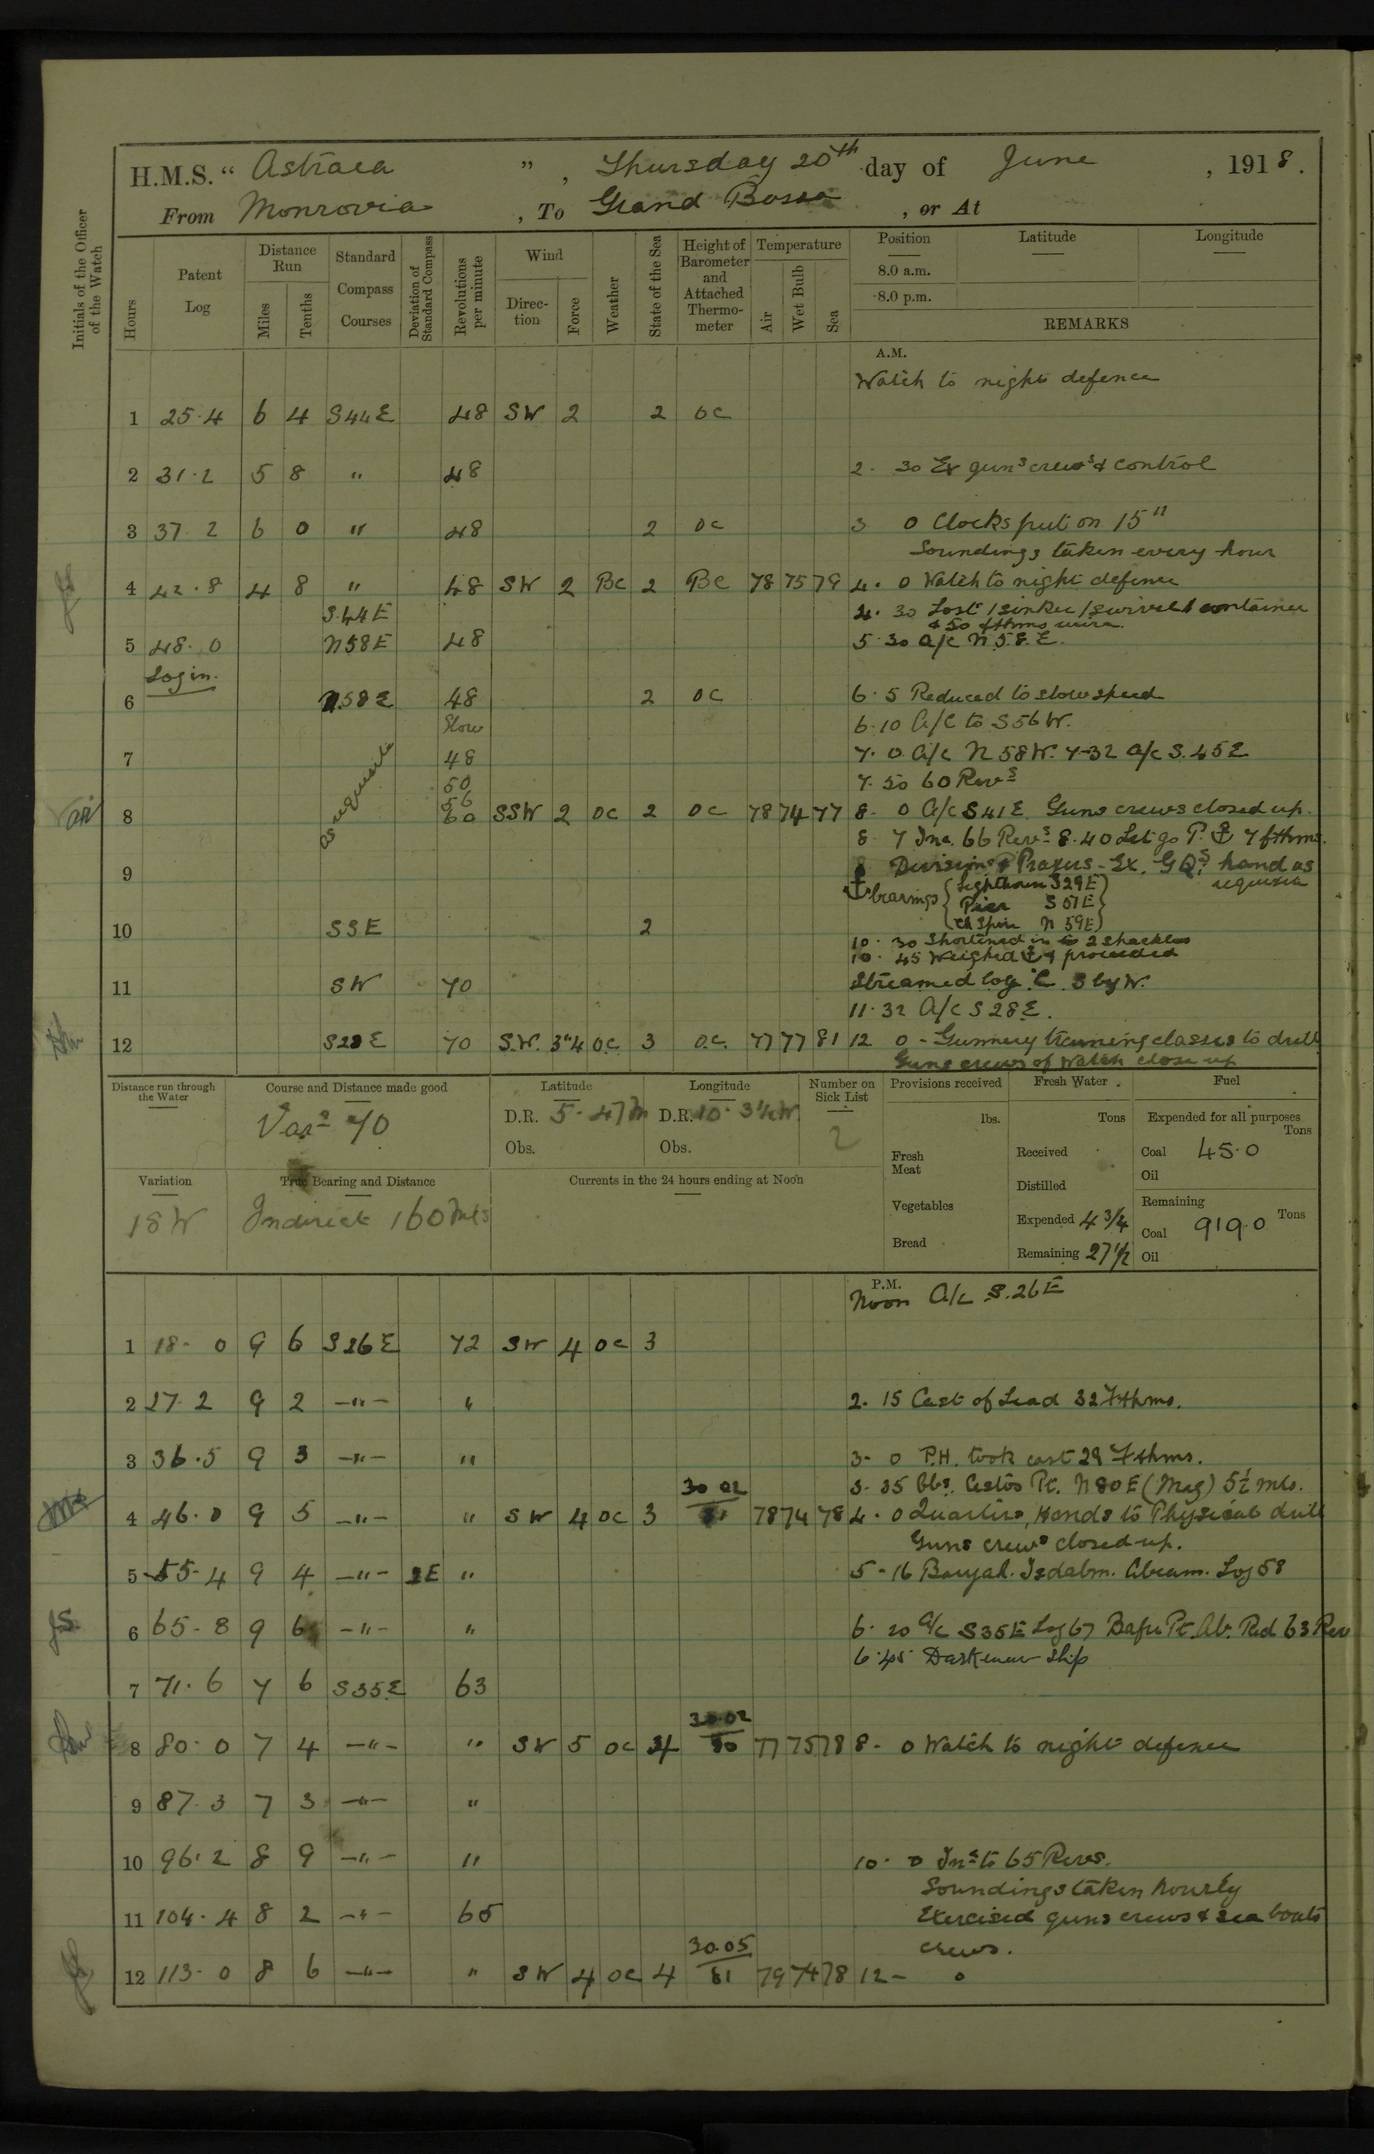 H.M.S. “ Astraea ” , Thursday 20th day of June , 1918.
From Monrovia , To Grand Bassa , or At
Initials of the Officer of the Watch
Hours
Patent Log
Distance Run
Miles
Tenths
Standard Compass Courses
Deviation of Standard Compass
Revolutions per minute
Wind
Direction
Force
Weather
State of the Sea
Height of Barometer and Attached Thermometer
Temperature
Air
Wet Bulb
Sea
Position
Latitude
Longitude
8.0 a.m.
8.0 p.m.
REMARKS
A.M.
Watch to night defence
1 25.4 6 4 S44E 48 SW 2 2 oc
2 31.2 5 8 " 48 2. 30 Ex guns crews & control
3 37.2 6 0 " 48 2 oc 3 0 Clocks put on 15"
Soundings taken every hour
4 42.8 4 8 " 48 SW 2 Bc 2 Bc 78 75 79 4. 0 Watch to night defence
S.44E 4. 30 Lost 1 sinker 1 swivel 1 container
& 50 fthms wire.
5 48.0 N58E 48 5.30 A/C N.58.E.
Log in.
6 N.58E 48 2 oc 6.5 Reduced to slow speed
Slow 6.10 A/C to S56W.
7 as requisite 48 7.0. A/C N58W. 7-32 A/C S.45E
50 7.50 60 Revs
56
8 60 SSW 2 oc 2 oc 78 74 77 8. 0 A/C S41E. Guns crews closed up.
8 7 Inc. 66 Revs 8.40 Let go P. ⚓ 7 fthms.
9 Divisions & Prayers - Ex. G.Qs. hand as
requisite
⚓ bearings { Lighthouse S29E
Pier S67E
Ch Spire N 59E }
10 SSE 2
10. 30 Shortened in to 2 shackles
10. 45 Weighed ⚓ & proceeded
11 SW 70 Streamed log. C. S by W.
11.32 A/C S28E.
12 S28E 70 S.W. 3"4 o.c. 3 o.c. 77 77 81 12 0 - Gunnery training classes to drill
Guns crews of Watch close up
Distance run through the Water
Course and Distance made good
Vars 70
Latitude
D.R. 5. 47N
Obs.
Longitude
D.R. 10. 3½W.
Obs.
Number on Sick List
2
Provisions received
lbs.
Fresh Meat
Vegetables
Bread
Fresh Water
Tons
Received
Distilled
Expended 4¾
Remaining 27½
Fuel
Expended for all purposes
Tons
Coal 45.0
Oil
Remaining
Tons
Coal 919.0
Oil
Variation
18W
True Bearing and Distance
Indirect 160 Mls
Currents in the 24 hours ending at Noon
P.M.
Noon A/C S.26E
1 18. 0 9 6 S26E 72 SW 4 oc 3
2 27.2 9 2 -"- " 2. 15 Cast of Lead 32 Fthms.
3 36.5 9 3 -"- " 3. 0 P.H. took cast 29 Fthms.
3. 35 Obs. Cestos Pt. N80E (Mag) 5½ mls.
4 46.0 9 5 -"- " SW 4 oc 3 30.02 81 78 74 78 4. 0 Quarters, Hands to Physical drill
Guns crews closed up.
5 55.4 9 4 -"- 2E " 5-16 Abeam. Log 58
6 65.8 9 6 -"- " 6. 20 A/C S35E Log 67 Bafu Pt. Ab. Red 63 Rev
6.45 Darken ship
7 71.6 7 6 S35E 63
8 80.0 7 4 -"- " SW 5 oc 34 30.02 80 77 75 78 8. 0 Watch to night defence
9 87.3 7 3 -"- "
10 96.2 8 9 -"- " 10. 0 Inc to 65 Revs.
Soundings taken hourly
11 104.4 8 2 -"- 65 Exercised guns crews & sea boats
crews.
12 113.0 8 6 -"- " SW 4 oc 4 30.05 81 79 74 78 12- 0